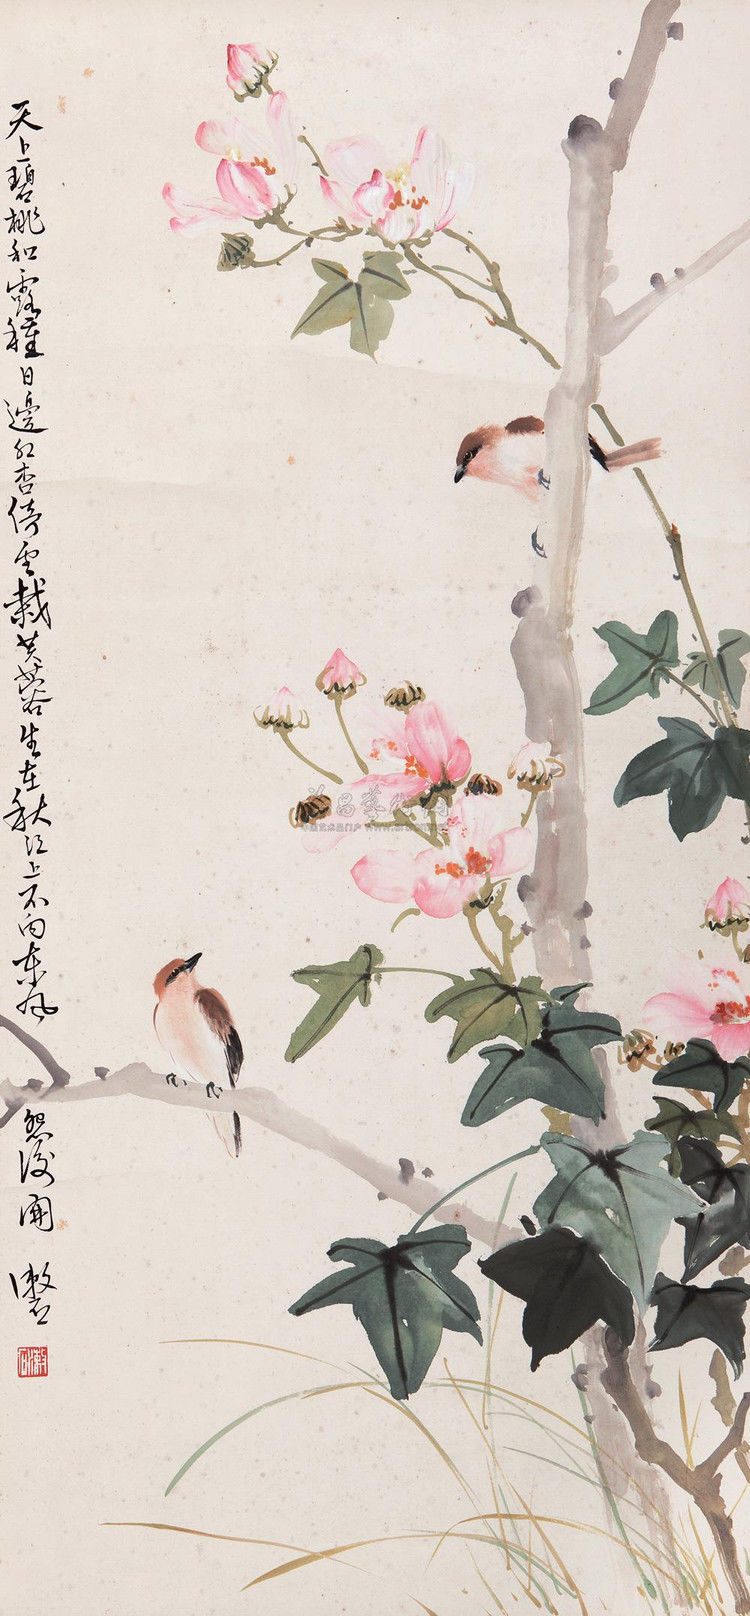 天上碧桃和露種日邊紅杏倚雲栽芙蓉生在秋江上不向東風
怨後開
漱石
漱石